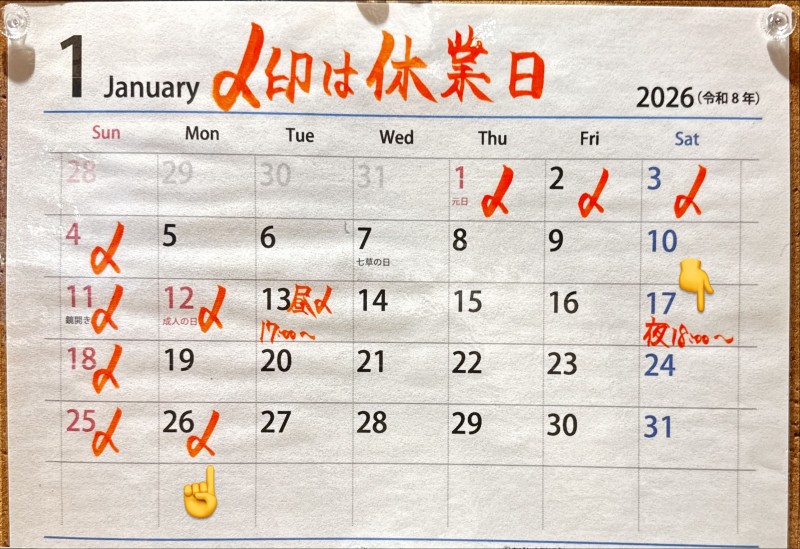 1 January 〆印は休業日 2026(令和8年)
Sun Mon Tue Wed Thu Fri Sat
28 29 30 31 1 〆 2 〆 3 〆
元日
4 〆 5 6 7 8 9 10
七草の日
11 〆 12 〆 13 昼〆 14 15 16 17
鏡開き 成人の日 17:00〜 夜18:00〜
18 〆 19 20 21 22 23 24
25 〆 26 〆 27 28 29 30 31